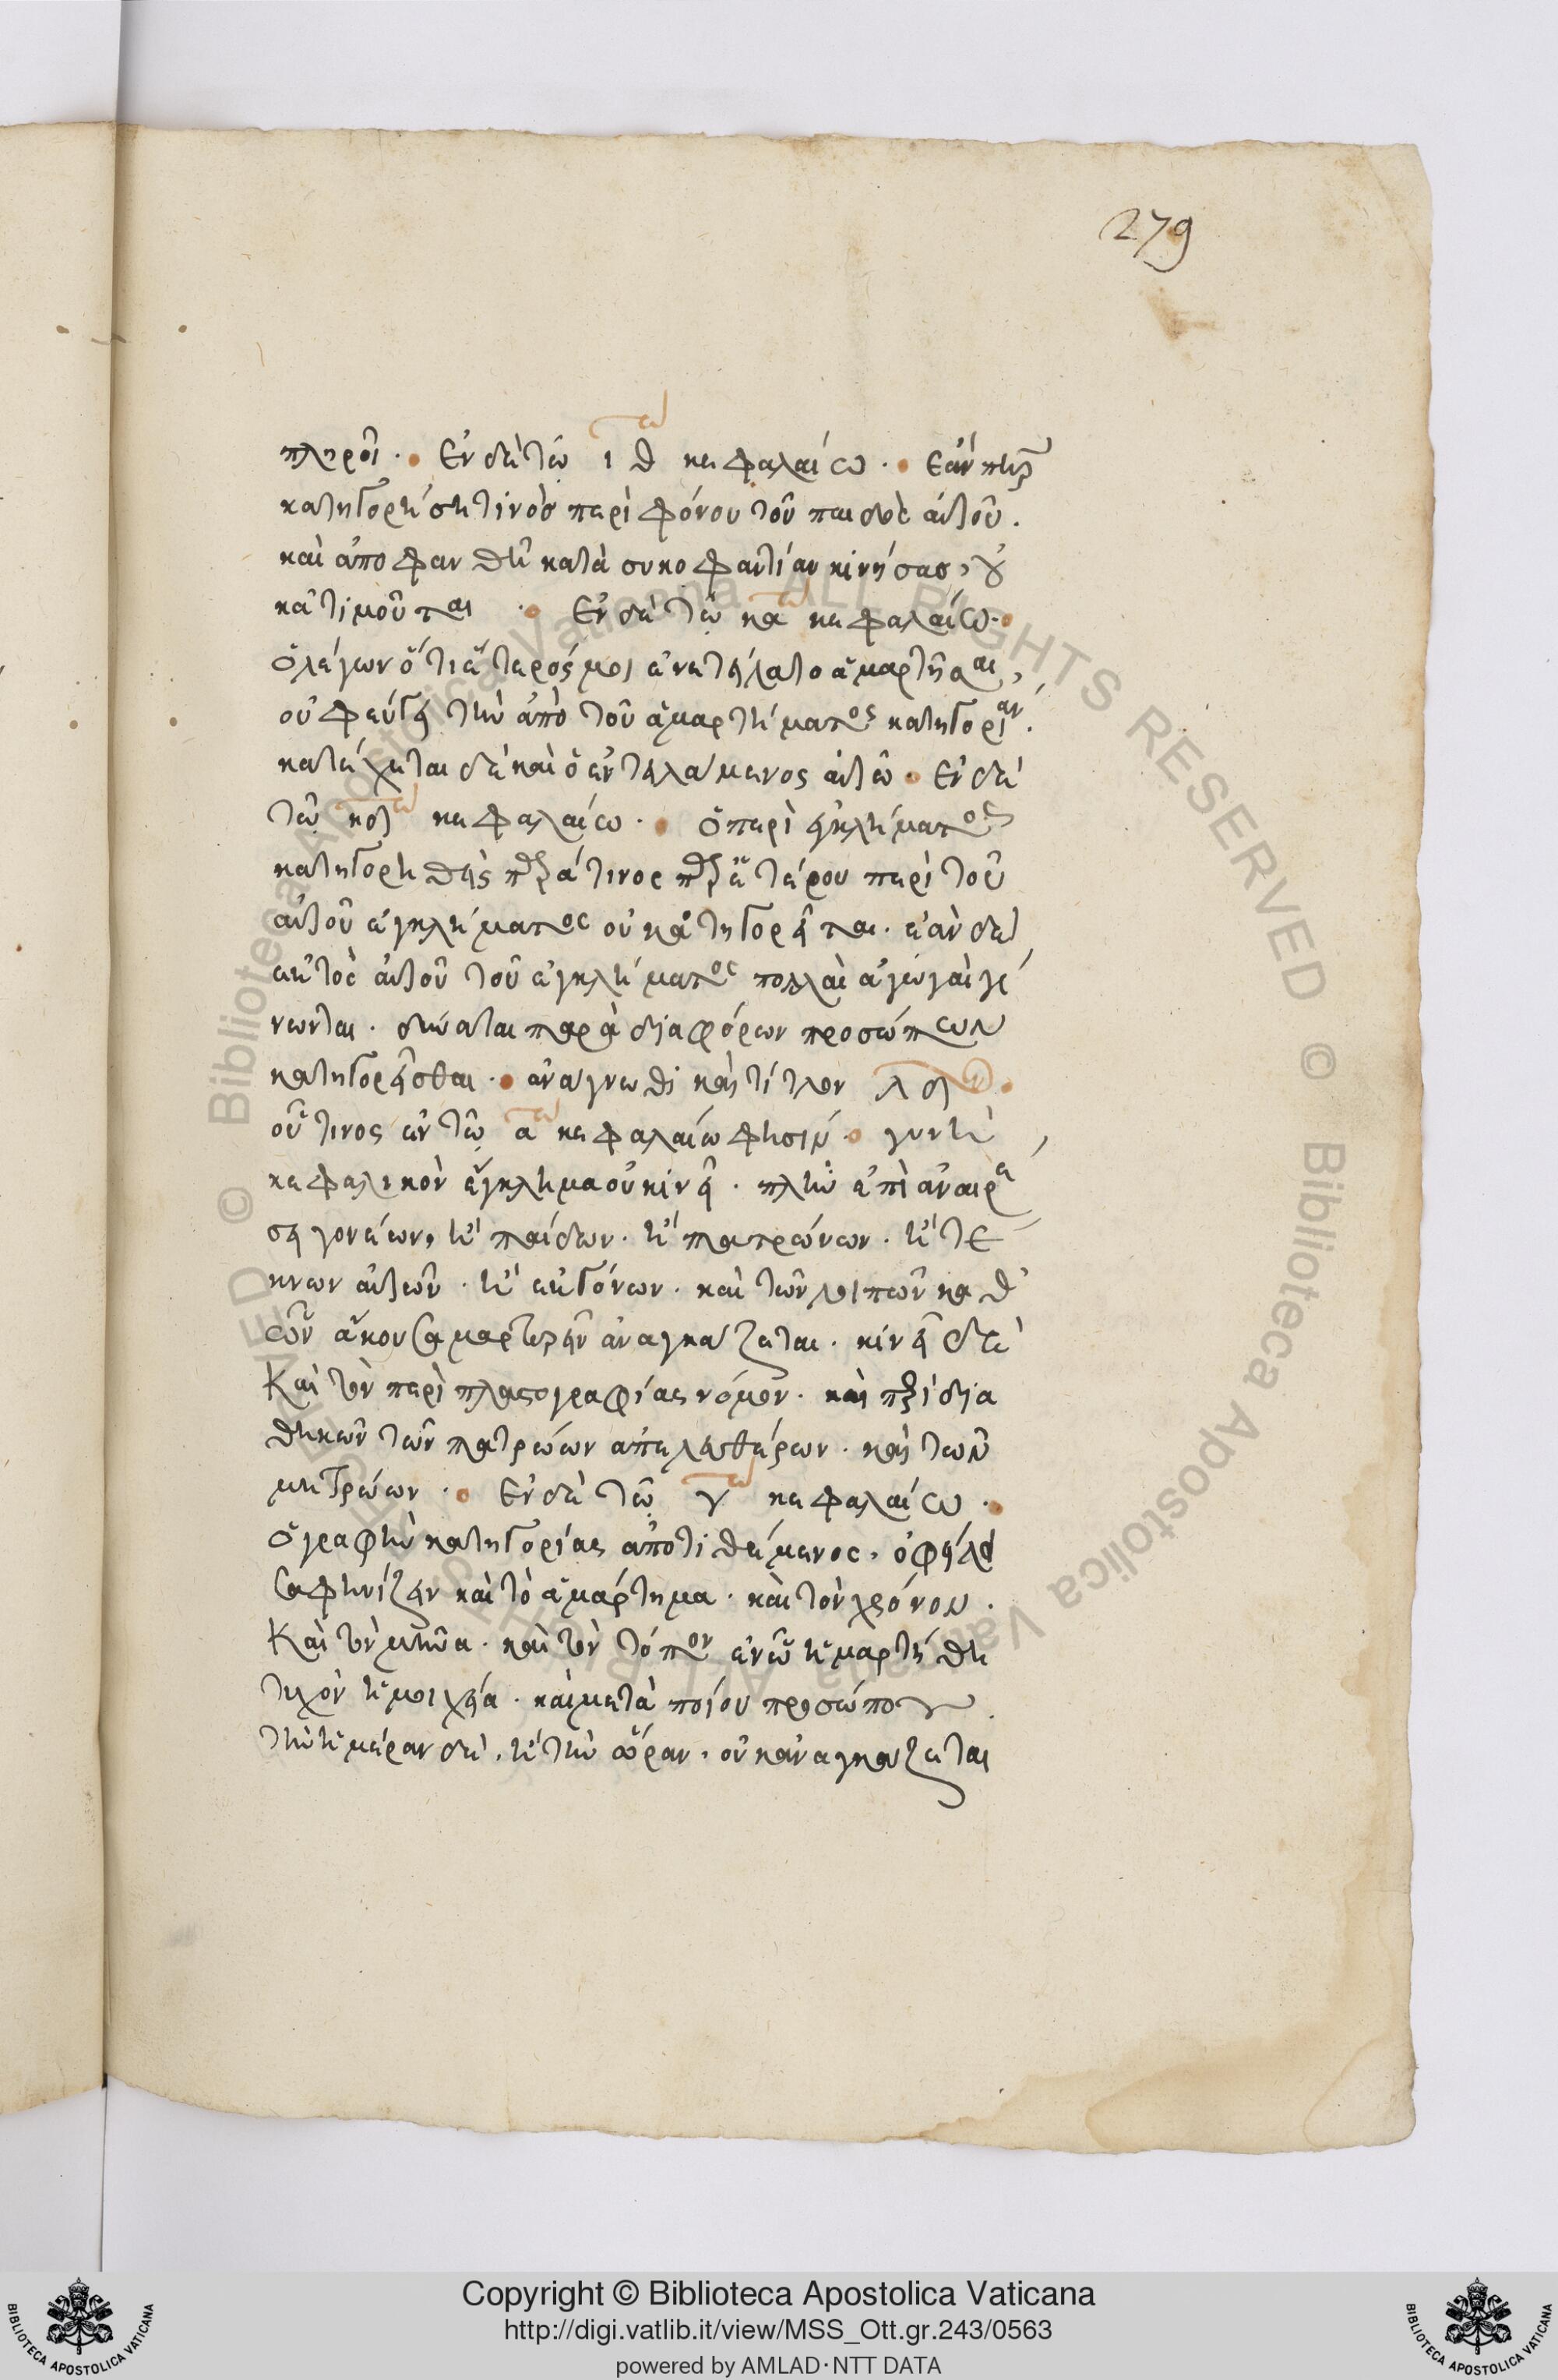 279
πληροῖ · Ἐν δὲ τῷ ιθ κεφαλαίω · Ἐάν πηρ
κατηγορήση τινὸσ περὶ φόνου τοῦ παιδὸς αὐτοῦ.
καὶ ἀποφανθῆ κατὰ συκοφαντίαν κινήσασ, οὐ
κἀτιμοῦται · Ἐν δὲ τῷ κα κεφαλαίω ·
ὁ λέγων ὅτι ἕτερός μοι ἐνετείλατο ἁμαρτῆσαι,
οὐ φεύγει τὴν ἀπὸ τοῦ ἁμαρτήματος κατηγορίαν.
κατέχεται δὲ καὶ ὁ ἐντειλάμενος αὐτῶ · Ἐν δὲ
τῷ κδ κεφαλαίω · ὁ περὶ ἐγκλήματος
κατηγορηθεὶς παρά τινος παρ' ἑτέρου περὶ τοῦ
αὐτοῦ ἐγκλήματος οὐ κατηγορεῖται. ἐὰν δὲ
ἐκ τοῦ αὐτοῦ τοῦ ἐγκλήματος πολλαὶ ἀγωγαὶ γέ
νωνται. δύναται παρὰ διαφόρων προσώπων
κατηγορεῖσθαι · ἀνάγνωθι καὶ τίτλον λδ
οὗτινος ἐν τῷ α κεφαλαίω φησὶν · γυνὴ
κεφαλικὸν ἔγκλημα οὐ κινεῖ. πλὴν ἐπὶ ἀναιρέ
σει γονέων, ἢ παίδων. ἢ πατρώνων. ἢ τέ
κνων αὐτῶν. ἢ ἐκγόνων. καὶ τῶν λοιπῶν καθ'
ὧν ἄκουσα μαρτυρεῖν ἀναγκάζεται. κινεῖ δὲ
Καὶ τὸν περὶ πλαστογραφίας νόμον. καὶ περὶ δια
θηκῶν τῶν πατρώων ἀπελευθέρων. καὶ τῶν
μητρώων · Ἐν δὲ τῷ γ κεφαλαίω ·
ὁ γραφὴν κατηγορίας ἀποτιθέμενος, ὀφείλει
σαφηνίζειν καὶ τὸ ἁμάρτημα. καὶ τὸν χρόνον.
Καὶ τὸν μῆνα. καὶ τὸν τόπον ἐν ᾧ ἡμαρτήθη
τυχὸν ἡ μοιχεία. καὶ μετὰ ποίου προσώπου.
τὴν ἡμέραν δὲ, ἢ τὴν ὥραν, οὐκ ἀναγκάζεται
Copyright © Biblioteca Apostolica Vaticana
http://digi.vatlib.it/view/MSS_Ott.gr.243/0563
powered by AMLAD·NTT DATA